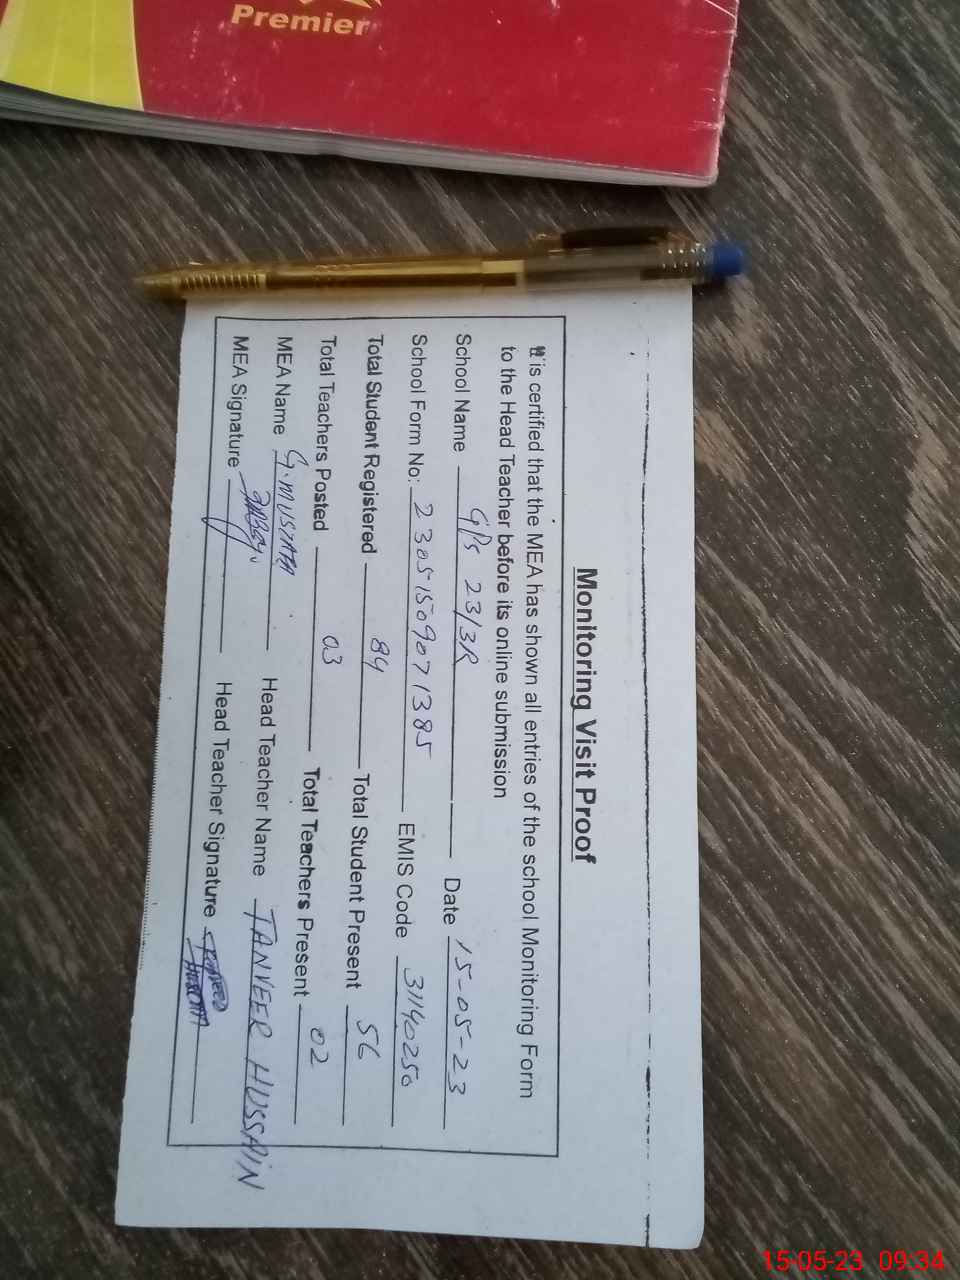 Premier
Monitoring Visit Proof
It is certified that the MEA has shown all entries of the school Monitoring Form
to the Head Teacher before its online submission
School Name G/PS 23/3R Date 15-05-23
School Form No: 23051509071385 EMIS Code 31140250
Total Student Registered 84 Total Student Present 56
Total Teachers Posted 03 Total Teachers Present 02
MEA Name G.MUSTAFA Head Teacher Name TANVEER HUSSAIN
MEA Signature Head Teacher Signature
15-05-23 09:34